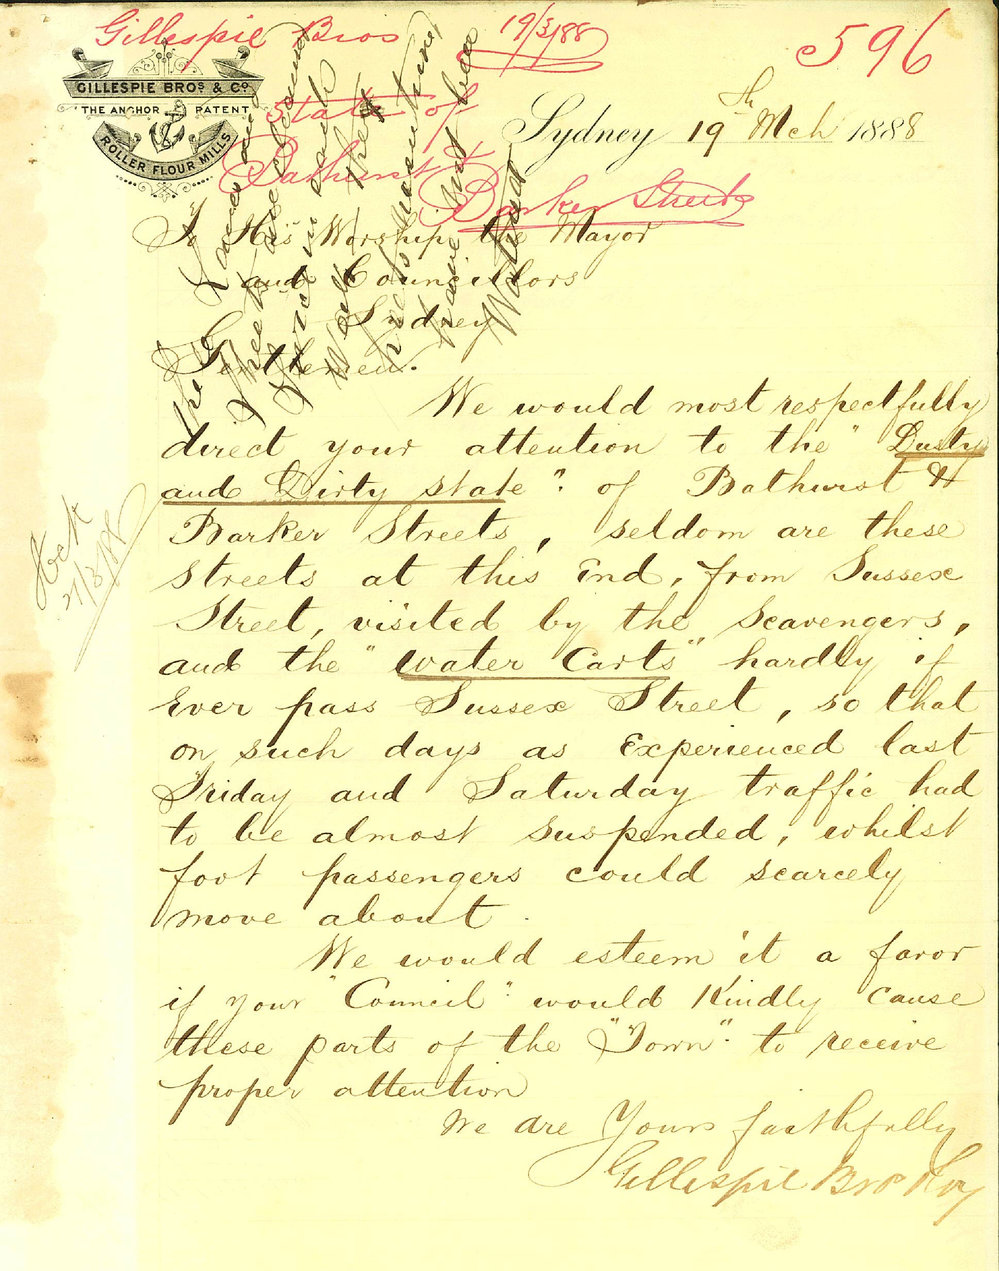 Gillespie Bros 19/3/88 596
State of
Bathurst &
Barker Streets
GILLESPIE BROS & CO
THE ANCHOR PATENT
ROLLER FLOUR MILLS
Sydney 19th Mch 1888
To His Worship the Mayor
and Councillors
Sydney
Gentlemen.
We would most respectfully
direct your attention to the "Dusty
and Dirty state". of Bathurst &
Barker Streets, seldom are these
streets at this End, from Sussex
Street, visited by the Scavengers,
and the "water Carts" hardly if
Ever pass Sussex Street, so that
on such days as Experienced last
Friday and Saturday traffic had
to be almost suspended, whilst
foot passengers could scarcely
move about.
We would esteem it a favor
if your "Council" would Kindly cause
these parts of the "Town". to receive
proper attention
We are Yours faithfully
Gillespie Bros & Coy
The
Streets are
in each
Week they
have not been
Watered
21/3/88